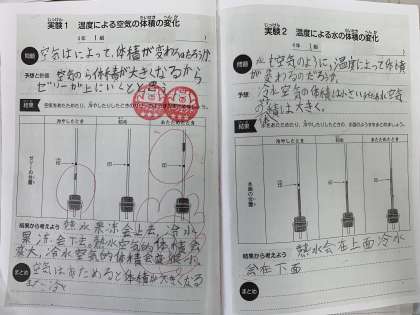 じっけん たいせき へんか
実験1 温度による空気の体積の変化
4年 1組
問題
空気はによって、体積が変わるのだろうか
予想と計画
空気のう体積が大きくなるから
ゼリーが上にいくと思う
結果
冷やしたとき
初め
あたためたとき
ゼリーの位置
結果から考えよう
熱水果冻会上去,冷水
果冻会下去。熱水空気的体積会
変大,冷水空気的体積会変小。
まとめ
空気はあためると体積が大きくなる
じっけん たいせき へんか
実験2 温度による水の体積の変化
4年 1組
問題
水も空気のように、温度によって体積
が変わるのだろうか。
予想
体積は大きい。
結果
冷やしたとき
初め
あたためたとき
水面の位置
結果から考えよう
熱水会在上面冷水
会在下面
まとめ